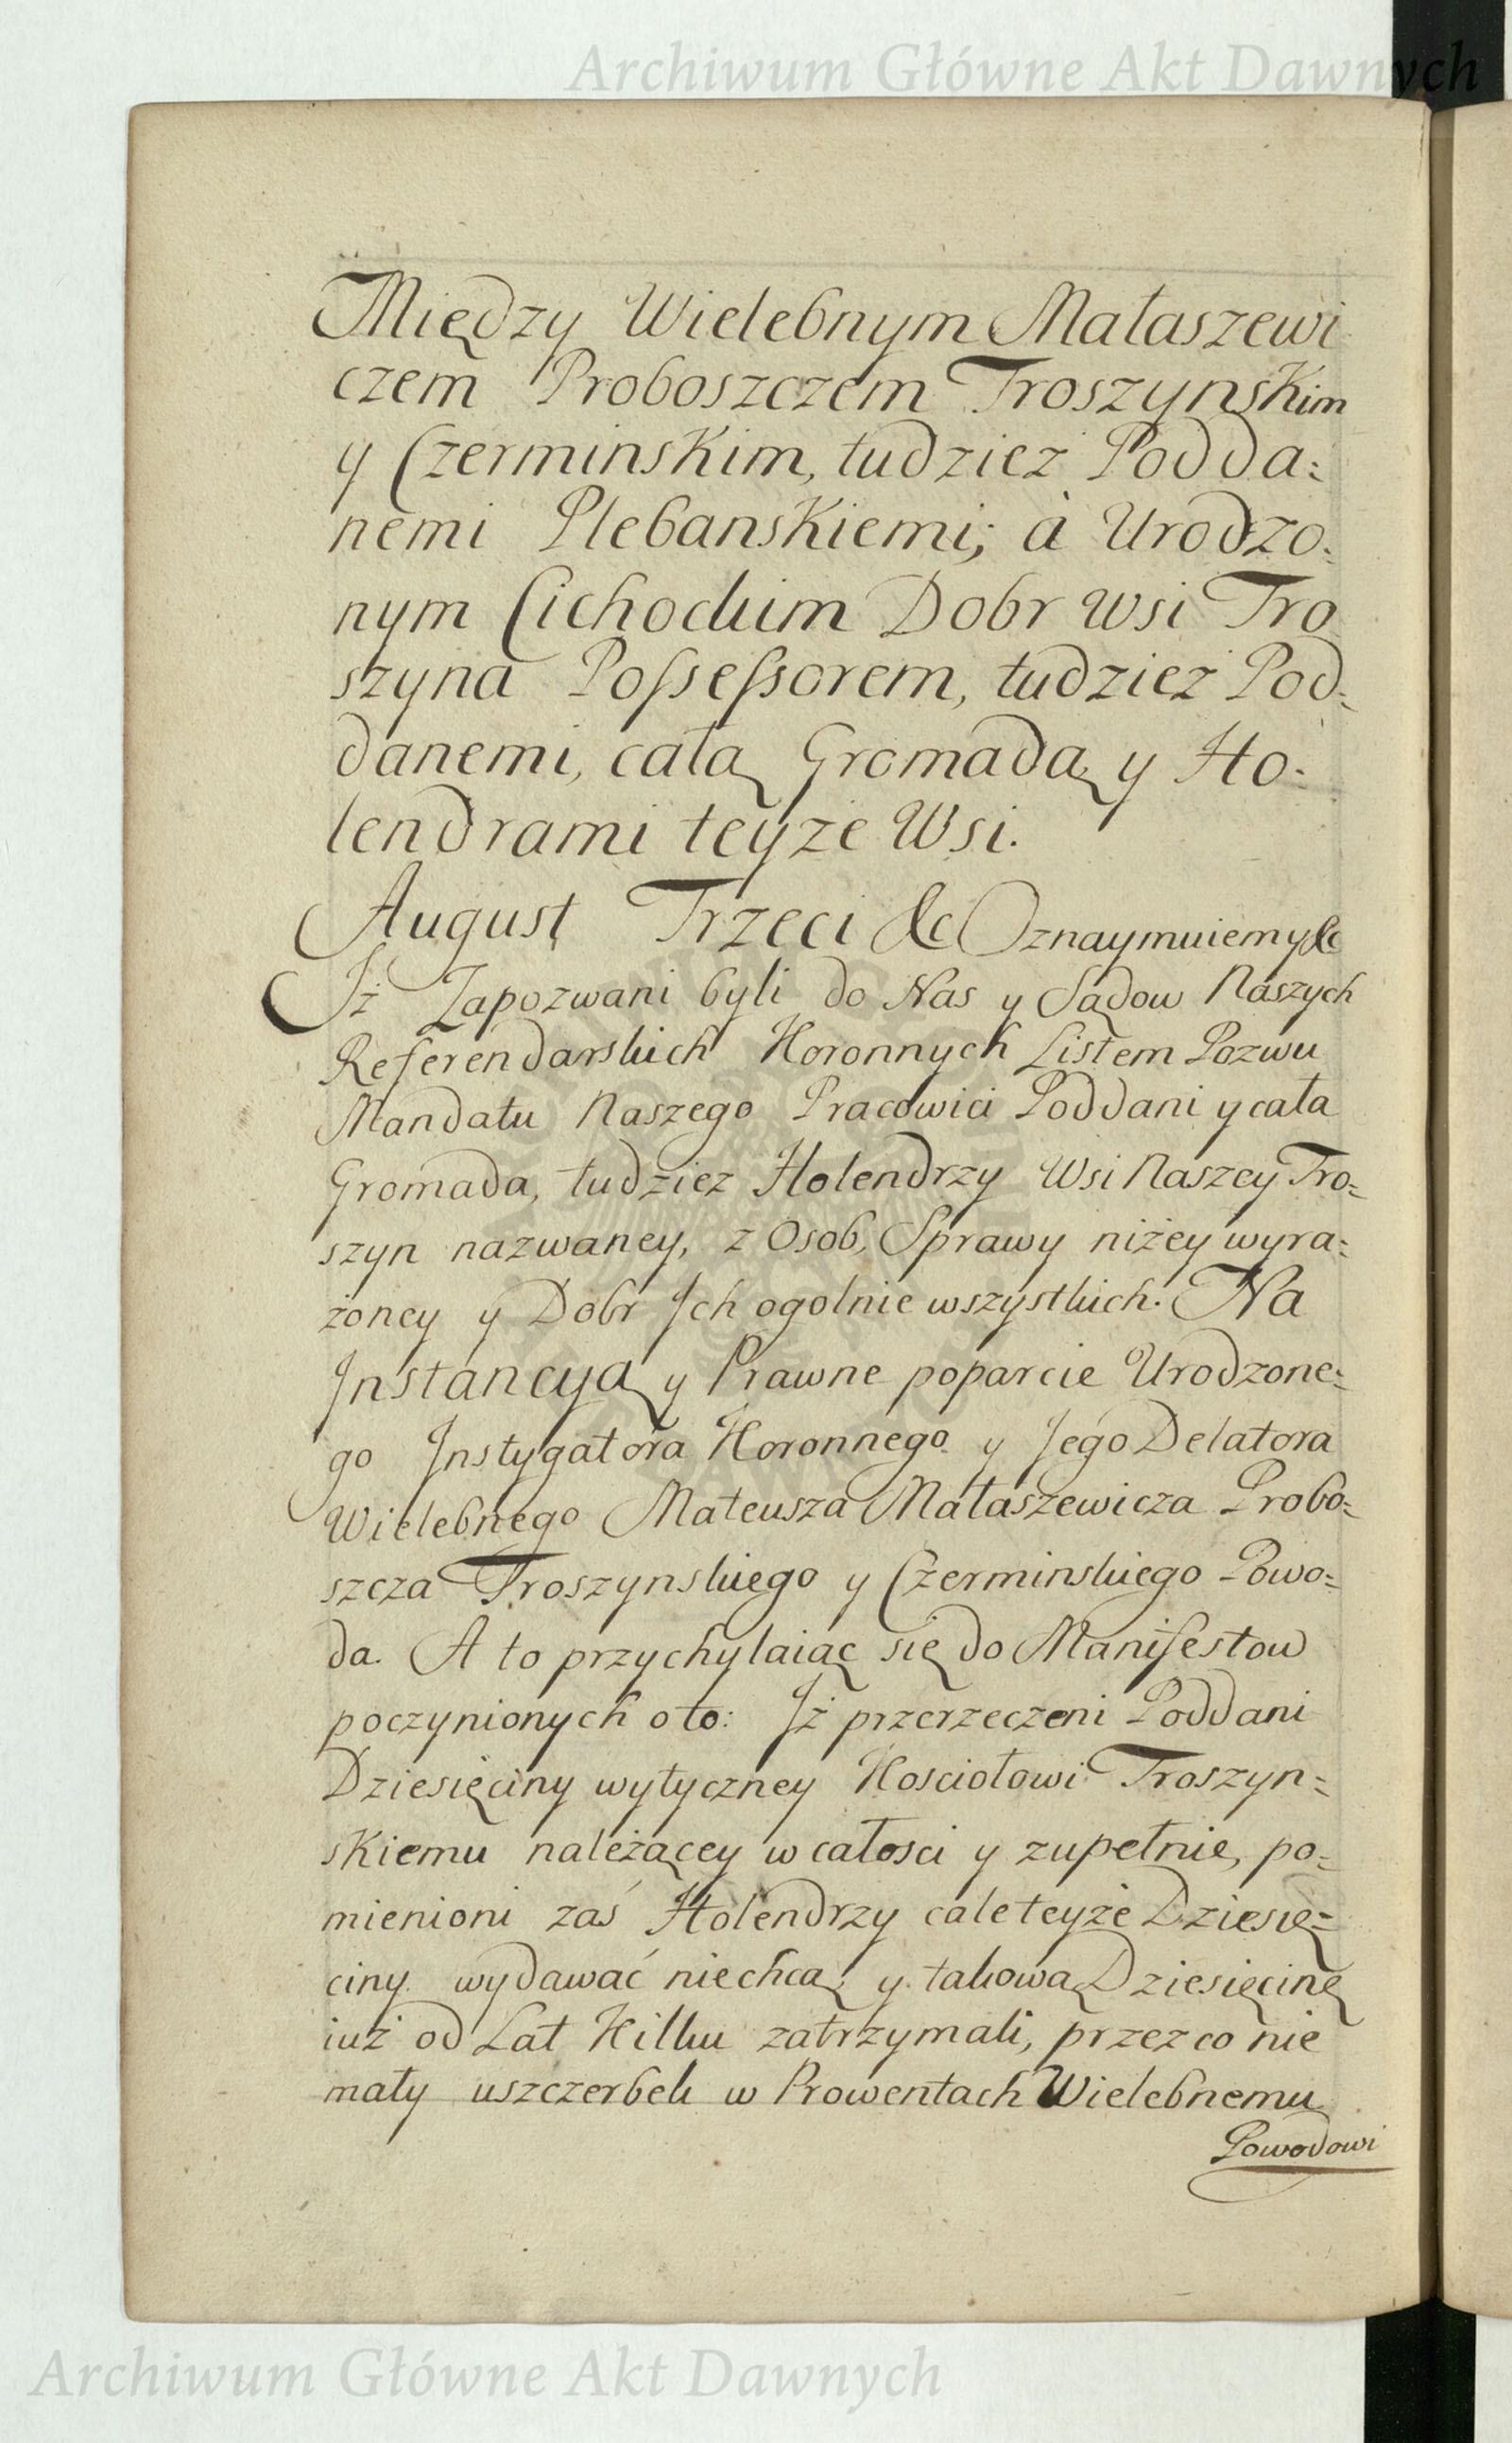 Archiwum Główne Akt Dawnych
Między Wielebnym Małaszewi
czem Proboszczem Troszynskim
y Czerminskim, tudziez Podda=
nemi Plebanskiemi; à Urodzo=
nym Cichockim Dobr wsi Tro
szyna Possessorem, tudziez Pod=
danemi, całą Gromadą y Ho=
lendrami teyze Wsi.
August Trzeci &c Oznaymuiemy &c
Iż Zapozwani byli do Nas y Sądow Naszych
Referendarskich Koronnych Listem Pozwu
Mandatu Naszego Pracowici Poddani y cała
Gromada, tudziez Holendrzy Wsi Naszey Tro=
szyn nazwaney, z Osob, Sprawy niżey wyra=
żoney y Dobr Ich ogolnie wszystkich. Na
Instancyą y Prawne poparcie Urodzone=
go Instygatora Koronnego y Jego Delatora
Wielebnego Mateusza Małaszewicza Probo=
szcza Troszynskiego y Czerminskiego Powo=
da. A to przychylaiąc się do Manifestow
poczynionych oto: Iż przerzeczeni Poddani
Dziesięciny wytyczney Kosciołowi Troszyn=
skiemu należącey w całosci y zupełnie, po=
mienioni zaś Holendrzy cale teyże Dziesię=
ciny wydawać niechcą, y takową Dziesięcinę
iuż od Lat Kilku zatrzymali, przez co nie
mały uszczerbek w Prowentach Wielebnemu
Powodowi
Archiwum Główne Akt Dawnych